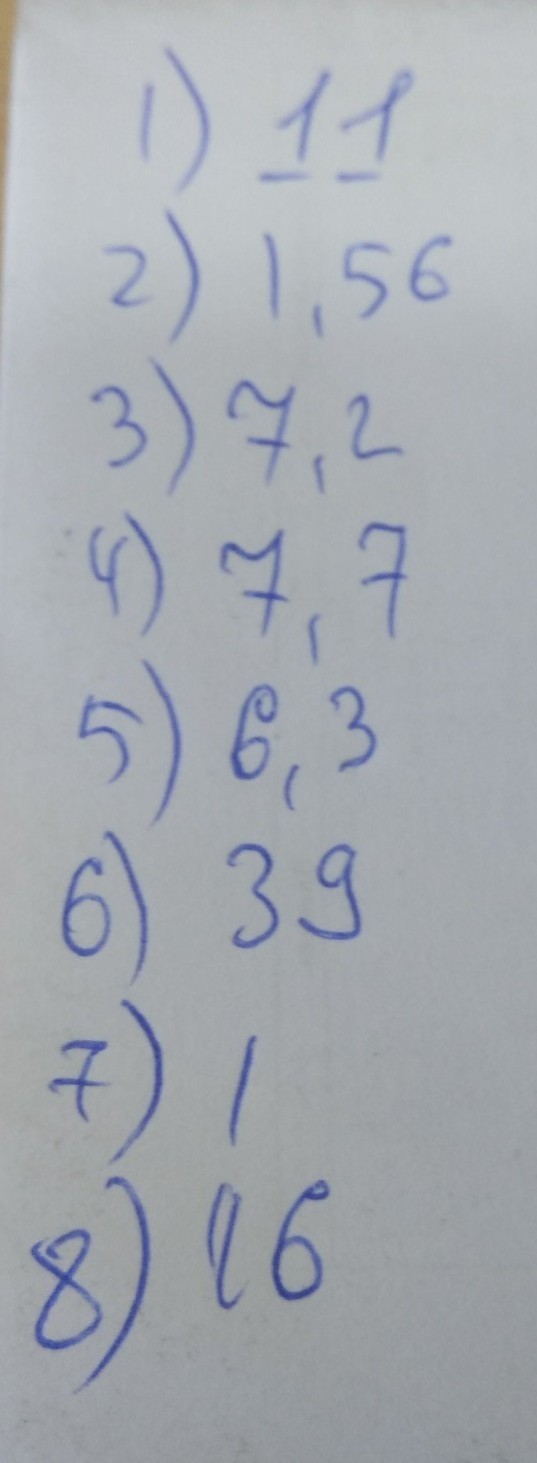 1) 11
2) 1,56
3) 7,2
4) 7,7
5) 6,3
6) 39
7) 1
8) 16